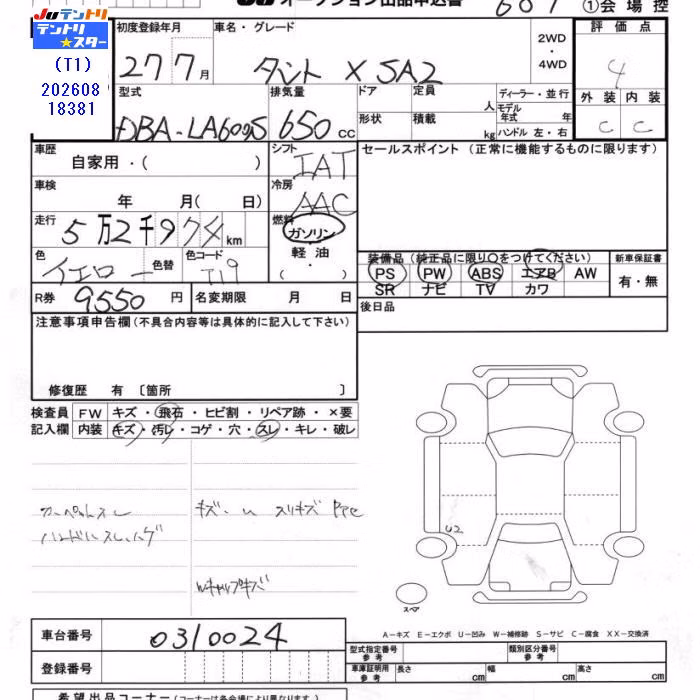 JUテントリ
テントリ★スター
(T1)
202608
18381
オークション出品申込書
607
①会場控
初度登録年月
車名・グレード
評価点
27 7月
タント X SA2
2WD
・
4WD
4
型式
排気量
ドア
定員
ディーラー・並行
外装
内装
人
モデル
年式 年
DBA-LA600S
650 cc
形状
積載
kg
ハンドル 左・右
C
C
車歴
シフト
セールスポイント (正常に機能するものに限ります)
自家用・( )
IAT
車検
冷房
年 月( 日)
AAC
走行
燃料
5万2千974km
ガソリン
軽油
色
色替
色コード
・
装備品 (純正品に限り○をつけてください)
新車保証書
イエロー
T19
PS PW ABS エアB AW
有・無
SR ナビ TV カワ
R券 9550 円
名変期限 月 日
後日品
注意事項申告欄 (不具合内容等は具体的に記入して下さい)
修復歴 有 〔箇所 〕
検査員 FW キズ・飛石・ヒビ割・リペア跡・×要
記入欄 内装 キズ・汚レ・コゲ・穴・スレ・キレ・破レ
カーペットスレ
キズ・U スリキズ
ハンドルスレ
Wキャップキズ
U2
スペア
車台番号
0310024
A-キズ E-エクボ U-凹み W-補修跡 S-サビ C-腐食 XX-交換済
型式指定番号
参考
類別区分番号
参考
登録番号
車庫証明用
参考
長さ cm
幅 cm
高さ cm
希望出品コーナー (コーナーは各会場により異なります)